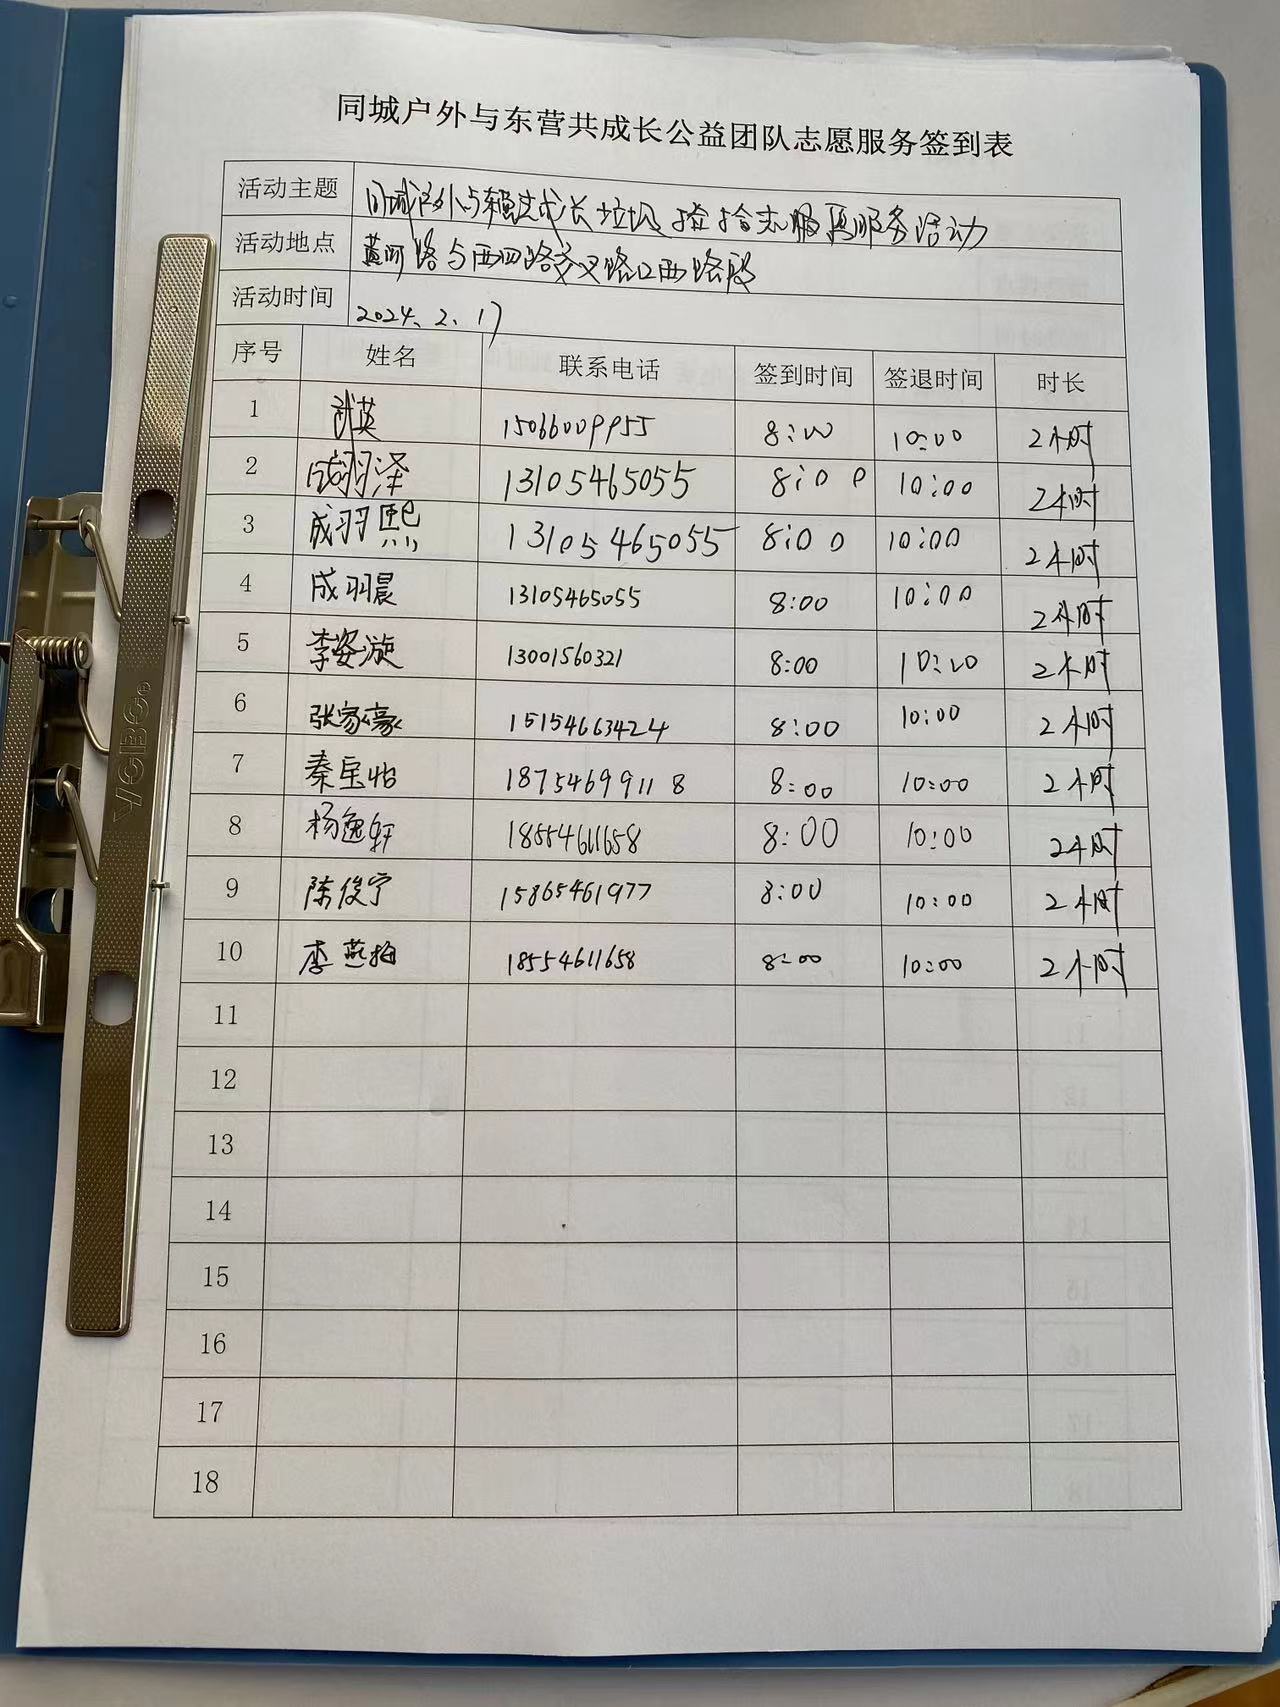 同城户外与东营共成长公益团队志愿服务签到表
活动主题 同城户外与东营共成长垃圾捡拾志愿服务活动
活动地点 黄河路与西四路交叉路口西路段
活动时间 2024.2.17
序号 姓名 联系电话 签到时间 签退时间 时长
1 武英 15066009955 8:00 10:00 2小时
2 成羽泽 13105465055 8:00 10:00 2小时
3 成羽熙 13105465055 8:00 10:00 2小时
4 成羽晨 13105465055 8:00 10:00 2小时
5 李姿漩 13001560321 8:00 10:00 2小时
6 张家豪 15154663424 8:00 10:00 2小时
7 秦宝怡 18754699118 8:00 10:00 2小时
8 杨逸轩 18554611658 8:00 10:00 2小时
9 陈俊宁 15865461977 8:00 10:00 2小时
10 李燕梅 18554611658 8:00 10:00 2小时
11
12
13
14
15
16
17
18